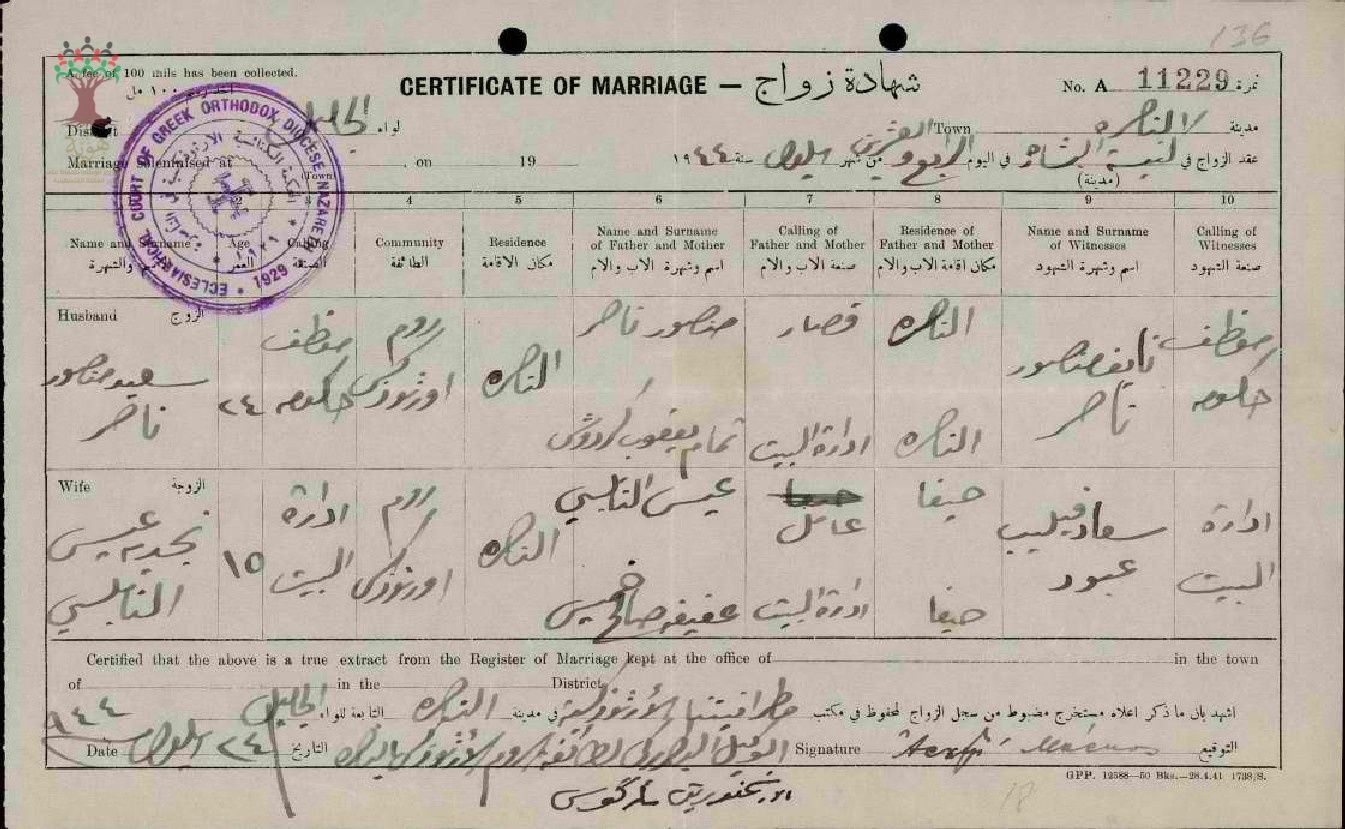 136
A fee of 100 mils has been collected.
CERTIFICATE OF MARRIAGE — شهادة زواج
No. A 11229 نمرة
District الجليل لواء
Town الناصرة مدينة
Marriage solemnised at on 19
عقد الزواج في كنيسة البشارة في اليوم الرابع والعشرين من شهر ايلول سنة ١٩٤٤
(Town) (مدينة)
ECCLESIASTICAL COURT OF GREEK ORTHODOX DIOCESE NAZARETH 1929
2 3 4 5 6 7 8 9 10
Name and Surname الاسم والشهرة
Age العمر
Calling الصنعة
Community الطائفة
Residence مكان الاقامة
Name and Surname of Father and Mother اسم وشهرة الاب والام
Calling of Father and Mother صنعة الاب والام
Residence of Father and Mother مكان اقامة الاب والام
Name and Surname of Witnesses اسم وشهرة الشهود
Calling of Witnesses صنعة الشهود
Husband الزوج
سعيد منصور ناصر
٢٤
موظف حكومه
روم اورثوذكس
الناصره
منصور ناصر
تمام يعقوب كردوش
قصار
ادارة البيت
الناصره
الناصره
نايف منصور ناصر
موظف حكومه
Wife الزوجة
نجديه عيسى النابلسي
١٥
ادارة البيت
روم اورثوذكس
الناصره
عيسى النابلسي
عفيفه صالح خميس
حيفا
عامل
ادارة البيت
حيفا
حيفا
سعاد فيليب عبود
ادارة البيت
Certified that the above is a true extract from the Register of Marriage kept at the office of in the town
of in the District
اشهد بان ما ذكر اعلاه مستخرج مضبوط من سجل الزواج المحفوظ في مكتب مطرانيتنا الارثوذكسية في مدينة الناصره التابعة للواء الجليل
Date ٢٤ ايلول ٩٤٤ التاريخ
الوكيل البطريركي لطائفة الروم الارثوذكس بالناصره
Signature التوقيع
الارشمندريت مركوس
GPP. 12588—50 Bks.—28.4.41 1738/S.
18